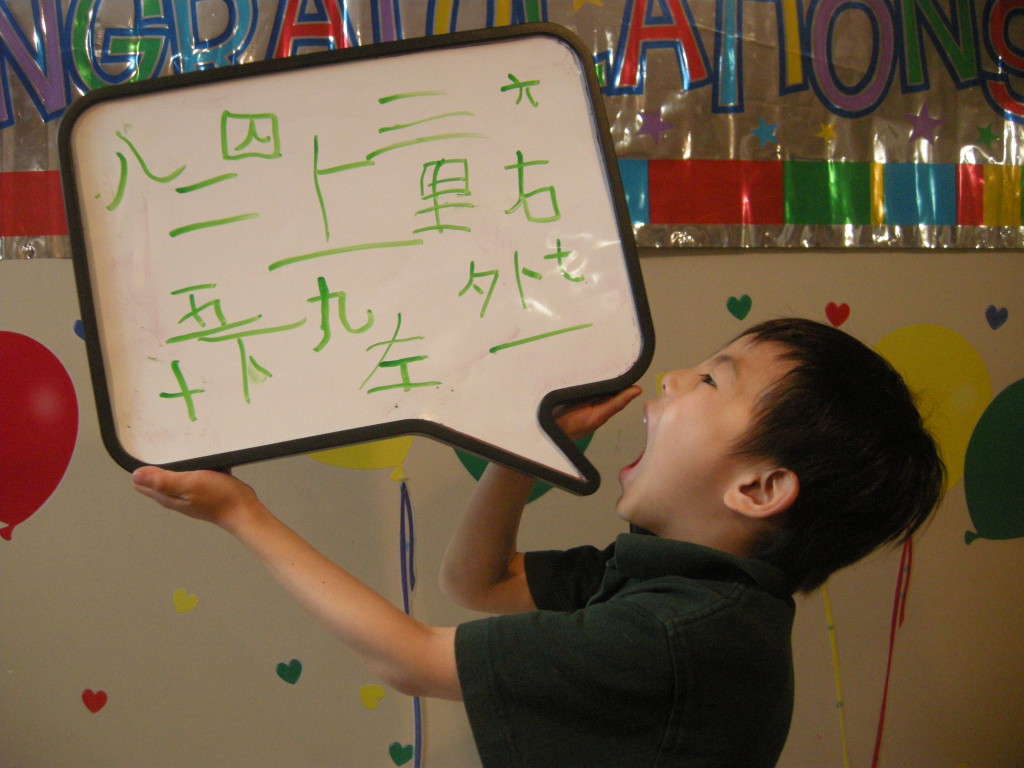 NGRATULATIONS
八 四 三 六
二 上 里 右
五 九 外 七
十 下 左 一